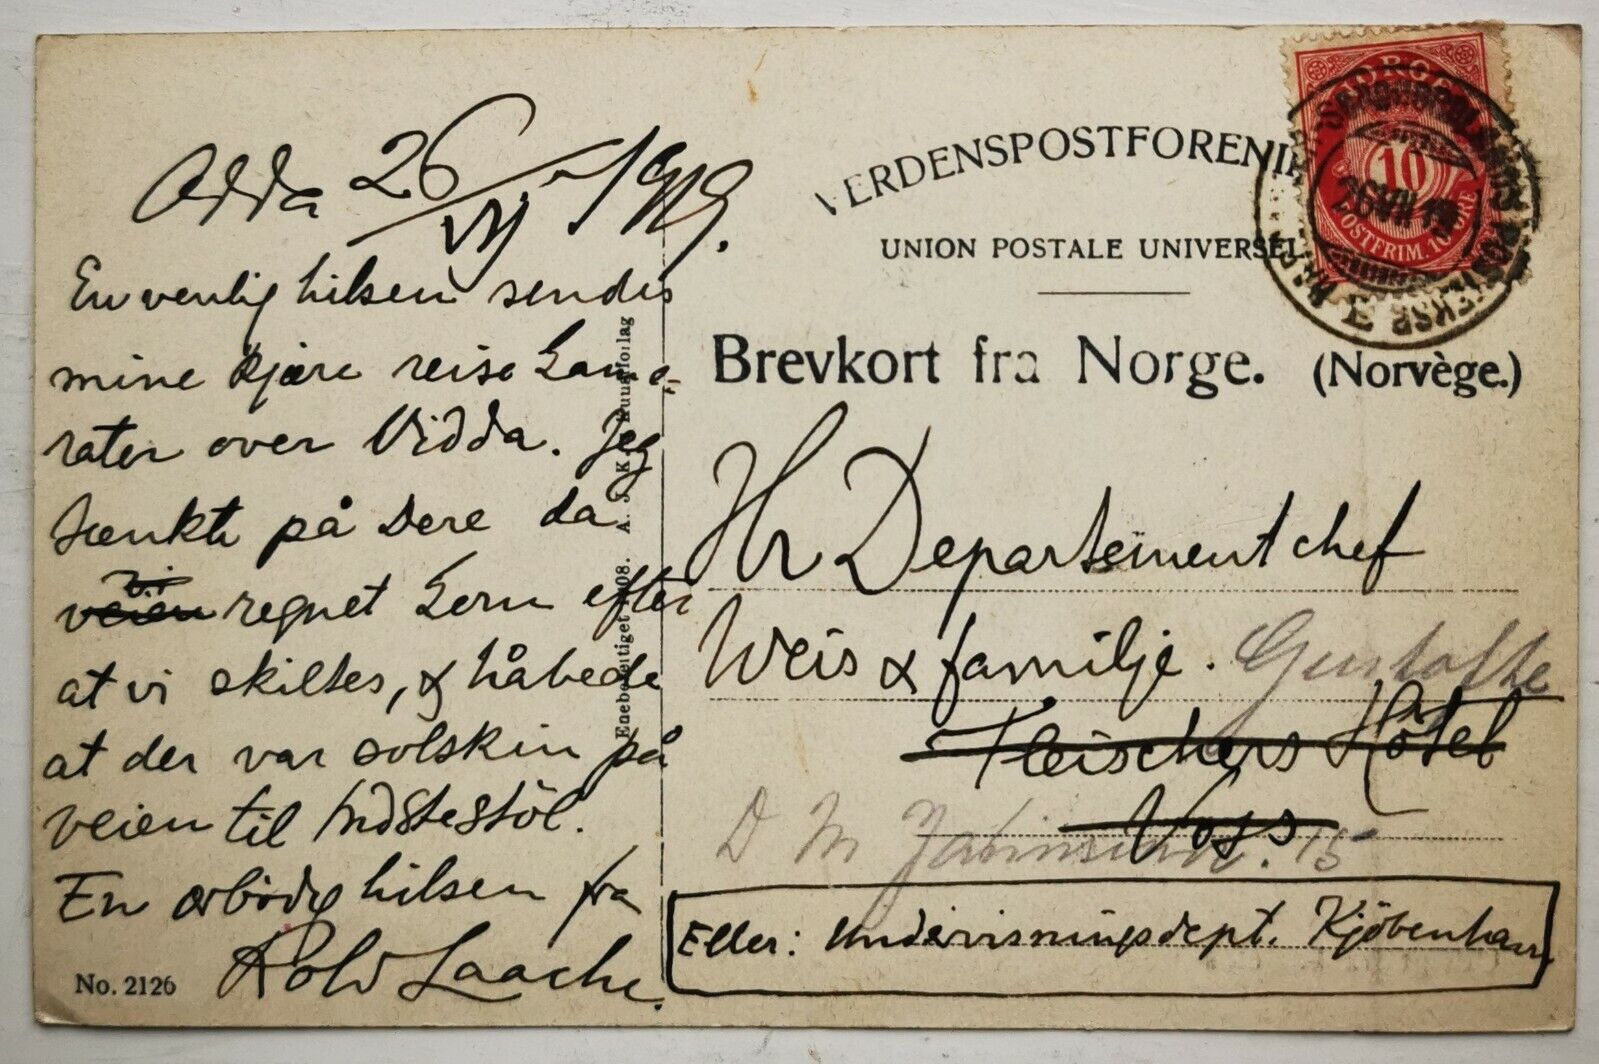 Odda 26/VII - 1919.
En venlig hilsen sendes
mine kjære reise kame-
rater over Vidda. Jeg
tænkte på Dere da
regnet kom efter
at vi skiltes, & håbede
at der var solskin på
veien til Indstestöl.
En ærbödig hilsen fra
Rolv Laache.
No. 2126
Eneberettiget 1908. A. J. K. forlag
VERDENSPOSTFORENIN
UNION POSTALE UNIVERSEL
Brevkort fra Norge. (Norvège.)
NORGE
10
POSTFRIM. 10 ØRE
26 VII 19
Hr Departementchef
Weis & familje.
Fleischers Hôtel
Voss
15
Eller: Undervisningsdept. Kjöbenhavn